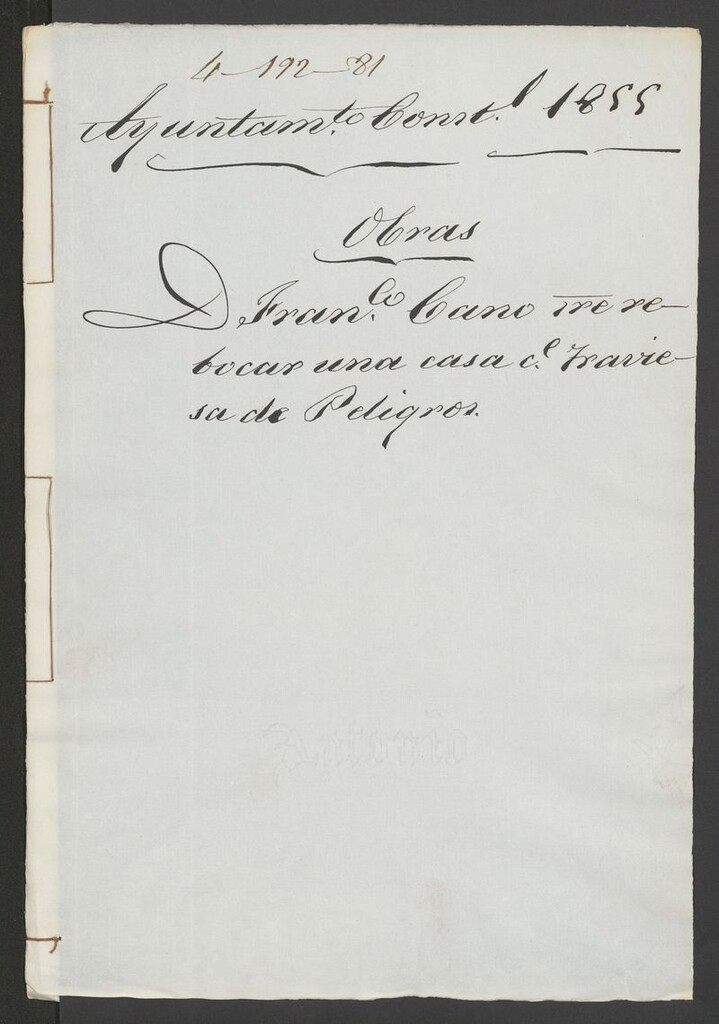 4-192-81
Ayuntam.to Const.l 1855
Obras
D Fran.co Cano sre re-
bocar una casa c.e Travie-
sa de Peligros.
Antonio